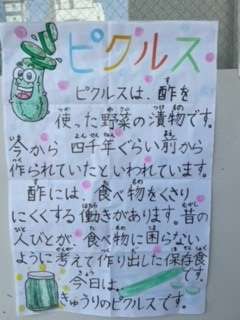 ピクルス
ピクルスは、酢を
使った野菜の漬物です。
今から 四千年ぐらい前から
作られていたといわれています。
酢には、食べ物をくさり
にくくする働きがあります。昔の
人びとが、食べ物に困らない
ように考えて作り出した保存食
です。
今日は、
きゅうりのピクルスです。